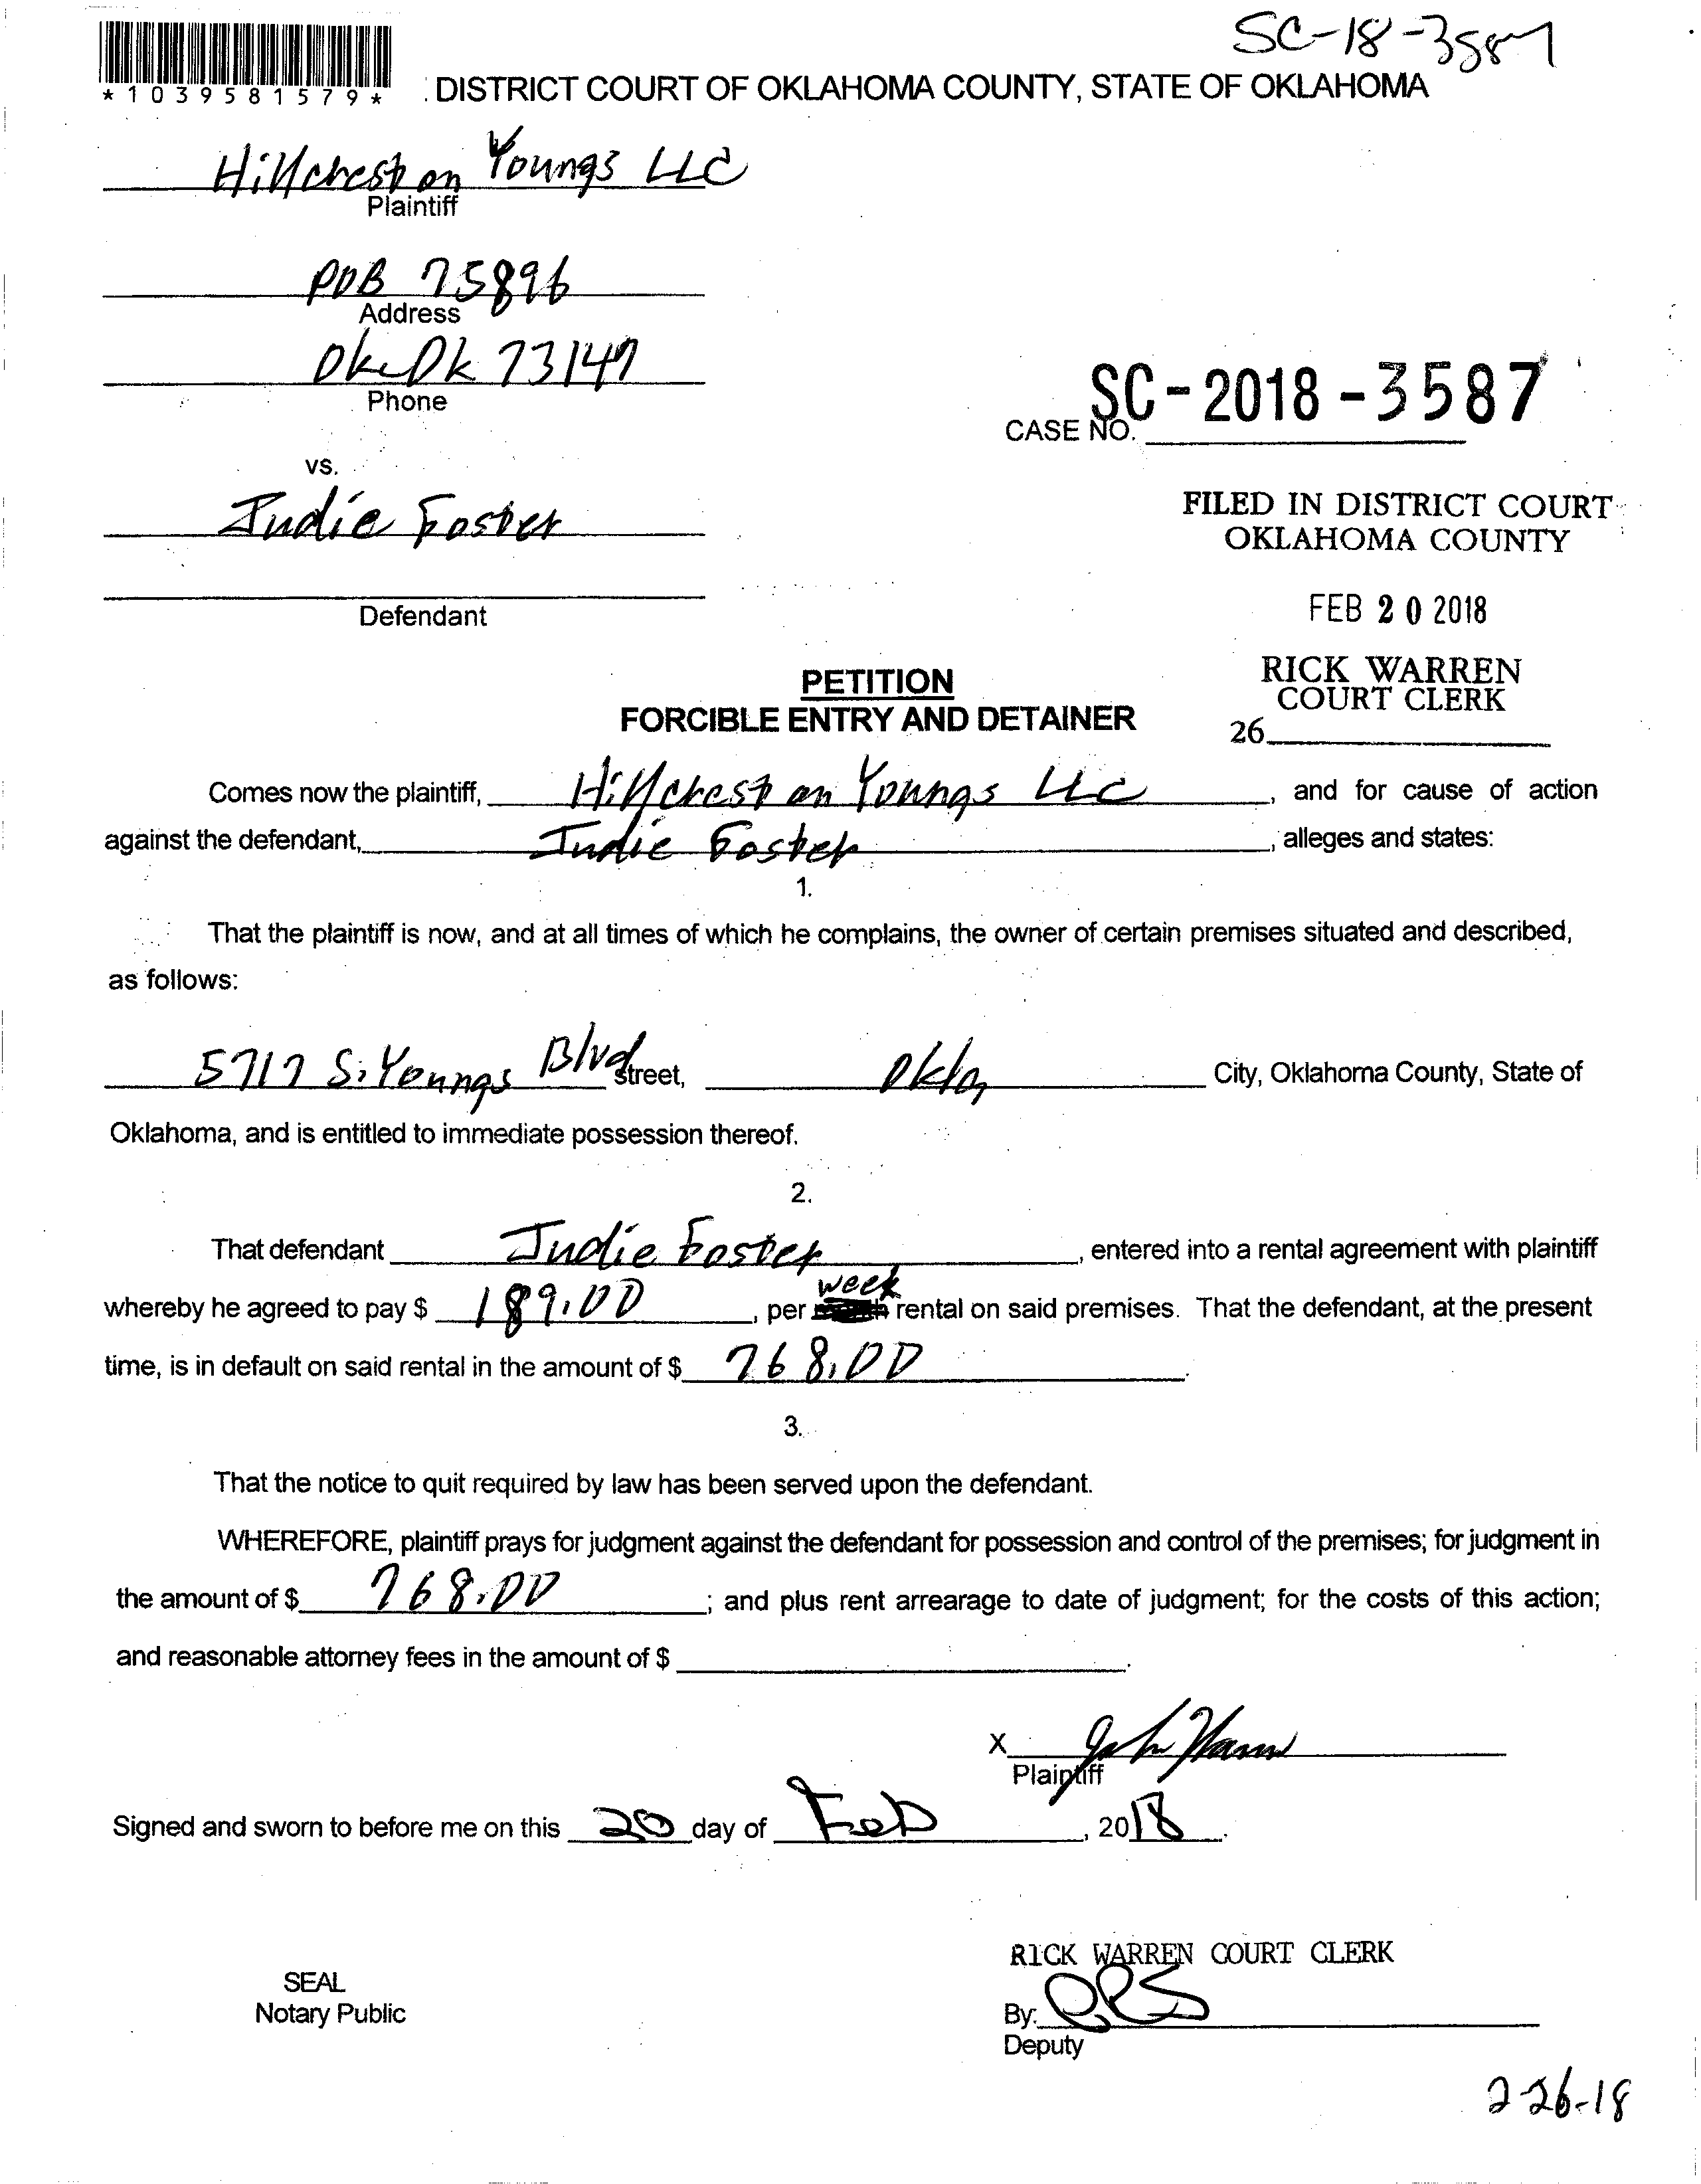 SC-18-3587
*1039581579*
DISTRICT COURT OF OKLAHOMA COUNTY, STATE OF OKLAHOMA
Hillcrest on Youngs LLC
Plaintiff
POB 75896
Address
Okc Ok 73147
Phone
SC-2018-3587
CASE NO.
vs.
Judie Foster
Defendant
FILED IN DISTRICT COURT
OKLAHOMA COUNTY
FEB 20 2018
RICK WARREN
COURT CLERK
26
PETITION
FORCIBLE ENTRY AND DETAINER
Comes now the plaintiff, Hillcrest on Youngs LLC, and for cause of action
against the defendant, Judie Foster, alleges and states:
1.
That the plaintiff is now, and at all times of which he complains, the owner of certain premises situated and described,
as follows:
5717 S. Youngs Blvd Street, Okla City, Oklahoma County, State of
Oklahoma, and is entitled to immediate possession thereof.
2.
That defendant Judie Foster, entered into a rental agreement with plaintiff
whereby he agreed to pay $ 189.00, per week rental on said premises. That the defendant, at the present
time, is in default on said rental in the amount of $ 768.00.
3.
That the notice to quit required by law has been served upon the defendant.
WHEREFORE, plaintiff prays for judgment against the defendant for possession and control of the premises; for judgment in
the amount of $ 768.00; and plus rent arrearage to date of judgment; for the costs of this action;
and reasonable attorney fees in the amount of $ .
X John
Plaintiff
Signed and sworn to before me on this 20 day of Feb, 2018.
RICK WARREN COURT CLERK
SEAL
Notary Public
By:
Deputy
2-26-18